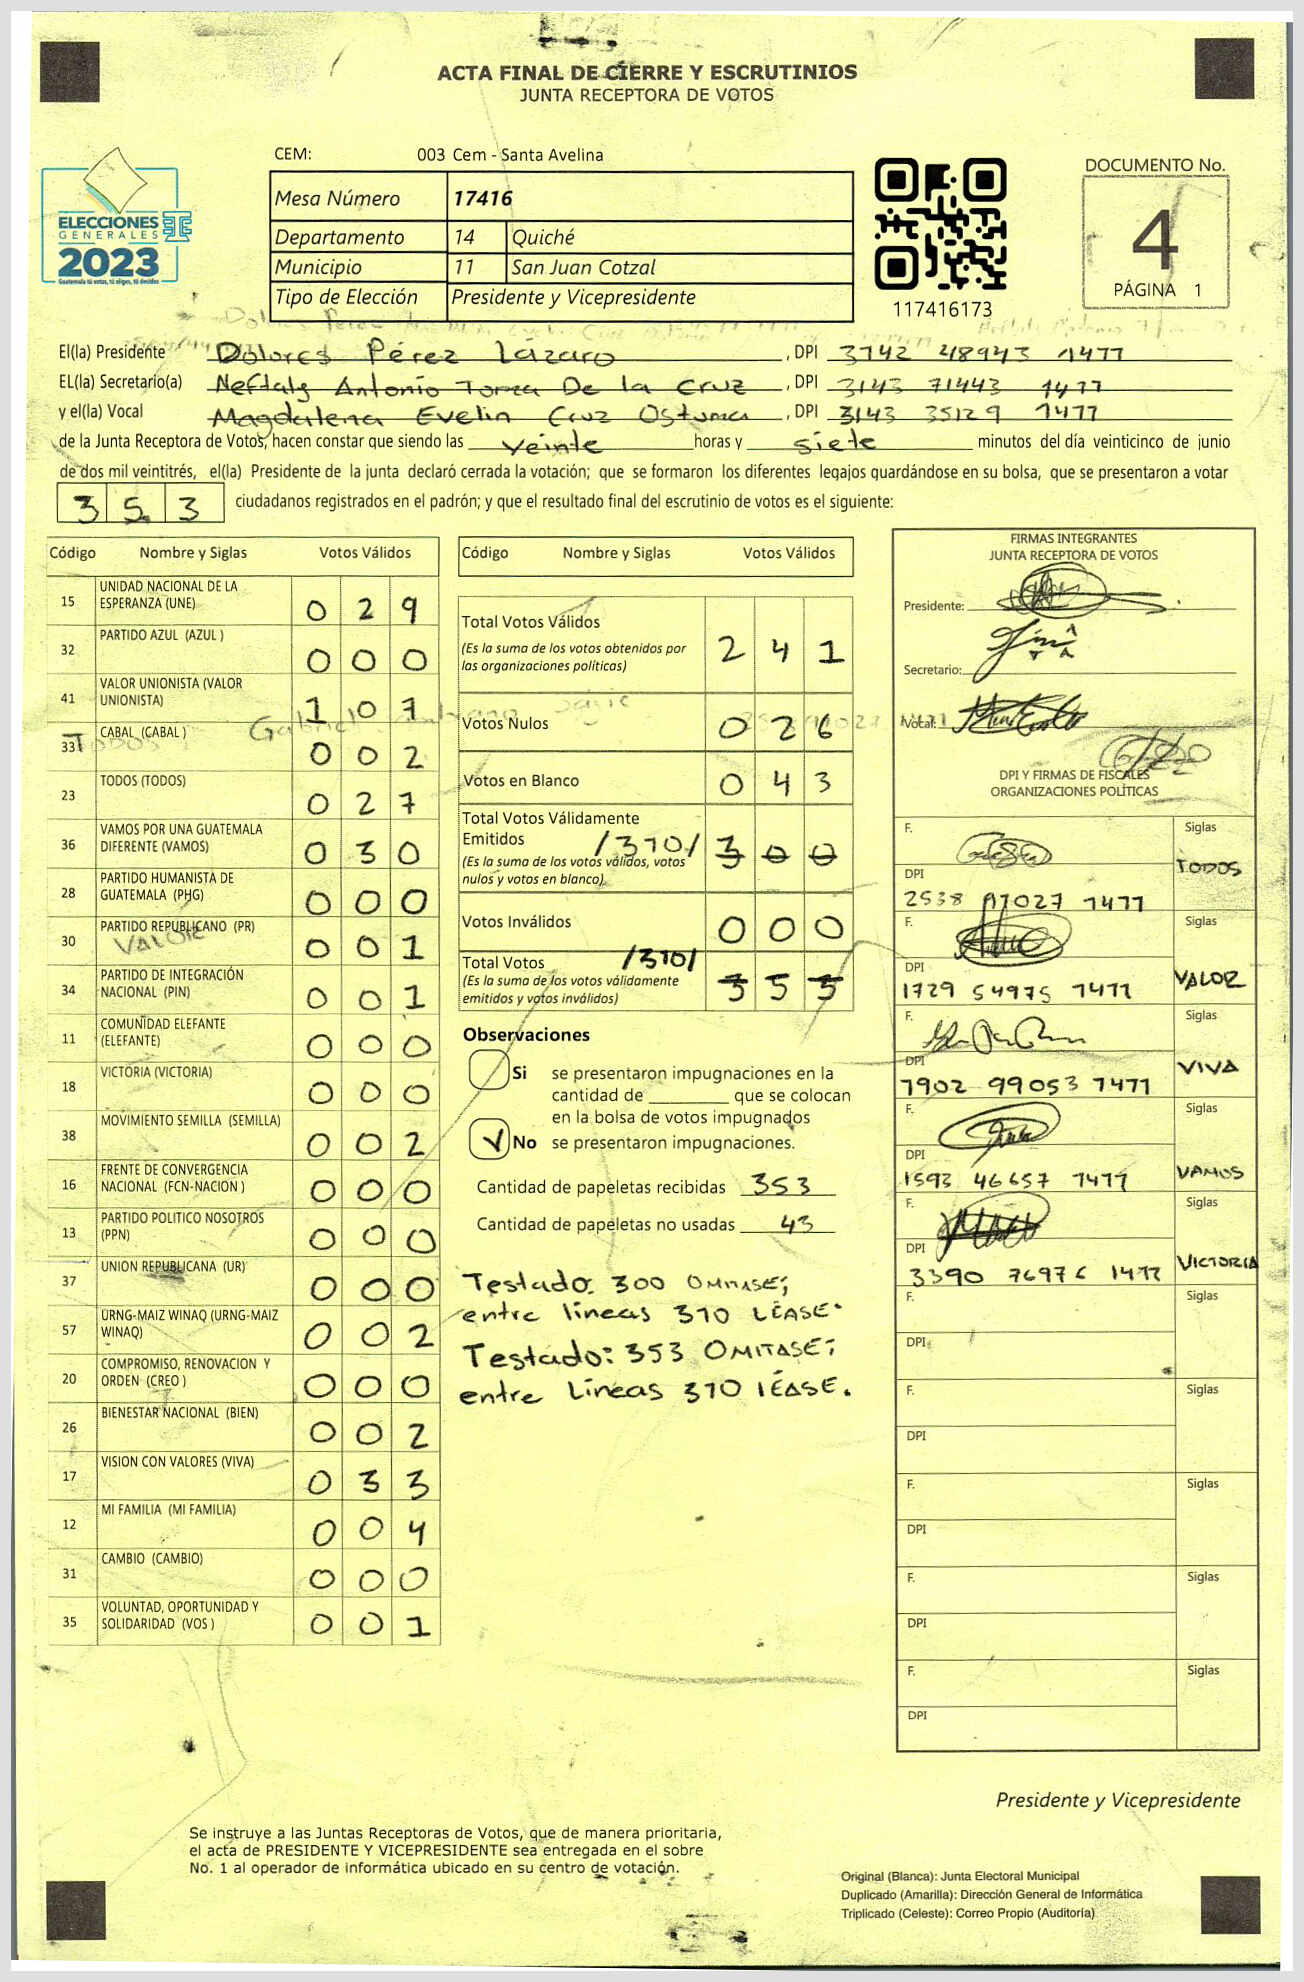 ACTA FINAL DE CIERRE Y ESCRUTINIOS
JUNTA RECEPTORA DE VOTOS
CEM: 003 Cem - Santa Avelina
ELECCIONES
GENERALES
2023
Guatemala tú votas, tú eliges, tú decides
Mesa Número 17416
Departamento 14 Quiché
Municipio 11 San Juan Cotzal
Tipo de Elección Presidente y Vicepresidente
117416173
DOCUMENTO No.
4
PÁGINA 1
El(la) Presidente Dolores Pérez Lázaro, DPI 3742 48943 1477
EL(la) Secretario(a) Neftaly Antonio Torza De la Cruz, DPI 3143 71443 1477
y el(la) Vocal Magdalena Evelin Cruz Ostuma, DPI 3143 35129 1477
de la Junta Receptora de Votos, hacen constar que siendo las veinte horas y siete minutos del día veinticinco de junio
de dos mil veintitrés, el(la) Presidente de la junta declaró cerrada la votación; que se formaron los diferentes legajos quardándose en su bolsa, que se presentaron a votar
353 ciudadanos registrados en el padrón; y que el resultado final del escrutinio de votos es el siguiente:
Código Nombre y Siglas Votos Válidos
15 UNIDAD NACIONAL DE LA ESPERANZA (UNE) 0 2 9
32 PARTIDO AZUL (AZUL ) 0 0 0
41 VALOR UNIONISTA (VALOR UNIONISTA) 1 0 7
33 CABAL (CABAL ) 0 0 2
23 TODOS (TODOS) 0 2 7
36 VAMOS POR UNA GUATEMALA DIFERENTE (VAMOS) 0 3 0
28 PARTIDO HUMANISTA DE GUATEMALA (PHG) 0 0 0
30 PARTIDO REPUBLICANO (PR) 0 0 1
VALOR
34 PARTIDO DE INTEGRACIÓN NACIONAL (PIN) 0 0 1
11 COMUNIDAD ELEFANTE (ELEFANTE) 0 0 0
18 VICTORIA (VICTORIA) 0 0 0
38 MOVIMIENTO SEMILLA (SEMILLA) 0 0 2
16 FRENTE DE CONVERGENCIA NACIONAL (FCN-NACION ) 0 0 0
13 PARTIDO POLITICO NOSOTROS (PPN) 0 0 0
37 UNION REPUBLICANA (UR) 0 0 0
57 URNG-MAIZ WINAQ (URNG-MAIZ WINAQ) 0 0 2
20 COMPROMISO, RENOVACION Y ORDEN (CREO ) 0 0 0
26 BIENESTAR NACIONAL (BIEN) 0 0 2
17 VISION CON VALORES (VIVA) 0 3 3
12 MI FAMILIA (MI FAMILIA) 0 0 4
31 CAMBIO (CAMBIO) 0 0 0
35 VOLUNTAD, OPORTUNIDAD Y SOLIDARIDAD (VOS ) 0 0 1
Código Nombre y Siglas Votos Válidos
Total Votos Válidos 2 4 1
(Es la suma de los votos obtenidos por
las organizaciones políticas)
Votos Nulos 0 2 6
Votos en Blanco 0 4 3
Total Votos Válidamente
Emitidos /310/ 3 0 0
(Es la suma de los votos válidos, votos
nulos y votos en blanco)
Votos Inválidos 0 0 0
Total Votos /310/ 3 5 3
(Es la suma de los votos válidamente
emitidos y votos inválidos)
Observaciones
Si se presentaron impugnaciones en la
cantidad de ________ que se colocan
en la bolsa de votos impugnados
No se presentaron impugnaciones.
Cantidad de papeletas recibidas 353
Cantidad de papeletas no usadas 43
Testado: 300 OMITASE;
entre líneas 310 LÉASE.
Testado: 353 OMITASE;
entre líneas 310 LÉASE.
FIRMAS INTEGRANTES
JUNTA RECEPTORA DE VOTOS
Presidente:
Secretario:
Vocal:
DPI Y FIRMAS DE FISCALES
ORGANIZACIONES POLÍTICAS
F. Siglas
TODOS
DPI
2538 17027 1477
F. Siglas
VALOR
DPI
1729 54975 1477
F. Siglas
VIVA
DPI
7902 99053 1477
F. Siglas
VAMOS
DPI
1593 46657 1477
F. Siglas
VICTORIA
DPI
3390 76976 1477
F. Siglas
DPI
F. Siglas
DPI
F. Siglas
DPI
F. Siglas
DPI
F. Siglas
DPI
Presidente y Vicepresidente
Se instruye a las Juntas Receptoras de Votos, que de manera prioritaria,
el acta de PRESIDENTE Y VICEPRESIDENTE sea entregada en el sobre
No. 1 al operador de informática ubicado en su centro de votación.
Original (Blanca): Junta Electoral Municipal
Duplicado (Amarilla): Dirección General de Informática
Triplicado (Celeste): Correo Propio (Auditoría)